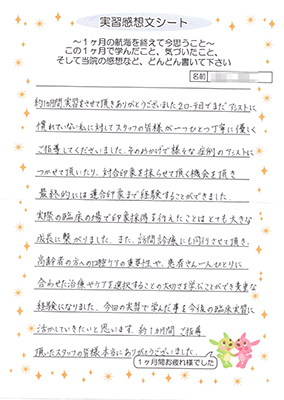 実習感想文シート
～1ヶ月の航海を終えて今思うこと～
この1ヶ月で学んだこと、気づいたこと、
そして当院の感想など、どんどん書いて下さい
名前
約1ヶ月間実習をさせて頂きありがとうございました。クローク日でまだアシストに
慣れていない私に対してスタッフの皆様が一つひとつ丁寧に優しく
ご指導してくださいました。そのおかげで様々な症例のアシストに
つかせて頂いたり、対合印象を採らせて頂く機会を頂き
最終的には連合印象まで経験することができました。
実際の臨床の場で印象採得を行えたことはとても大きな
成長に繋がりました。また、訪問診療にも同行させて頂き、
高齢者の方への口腔ケアの重要性や、患者さん一人ひとりに
合わせた治療やケアを選択することの大切さを学ぶことができ貴重な
経験になりました。今回の実習で学んだ事を今後の臨床実習に
活かしていきたいと思います。約1ヶ月間ご指導
頂いたスタッフの皆様本当にありがとうございました。
1ヶ月間お疲れ様でした